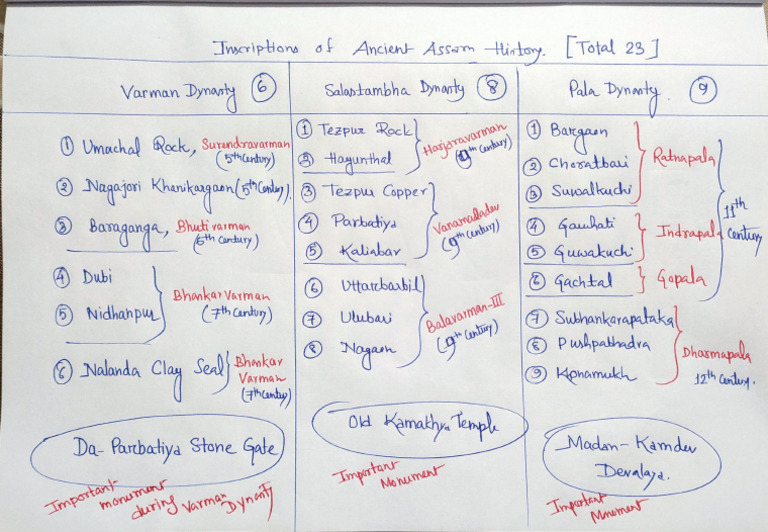 Inscriptions of Ancient Assam History. [Total 23]
Varman Dynasty 6
① Umachal Rock, Surendravarman
(5th Century)
② Nagajori Khanikargaon (5th Century).
③ Baraganga, Bhutivarman
(6th Century)
④ Dubi
⑤ Nidhanpur
Bhaskar Varman
(7th Century)
⑥ Nalanda Clay Seal
Bhaskar
Varman
(7th Century)
Da-Parbatiya Stone Gate
Important
monument
during Varman Dynasty
Salastambha Dynasty 8
① Tezpur Rock
② Hayunthal
Harjaravarman
(9th Century)
③ Tezpur Copper
④ Parbatiya
⑤ Kaliabar
Vanamaladev
(9th Century)
⑥ Uttarbarbil
⑦ Ulubari
⑧ Nagaon
Balavarman-III
(9th Century)
Old Kamakhya Temple
Important
Monument
Pala Dynasty. 9
① Bargaon
② Choratbari
③ Suwalkuchi
Ratnapala
④ Gauhati
⑤ Guwakuchi
Indrapal
⑥ Gachtal
Gopala
11th
Century
⑦ Subhankarapataka
⑧ Pushpabhadra
⑨ Konamukh
Dharmapala
12th Century.
Madan-Kamdev
Devalaya.
Important
Monument